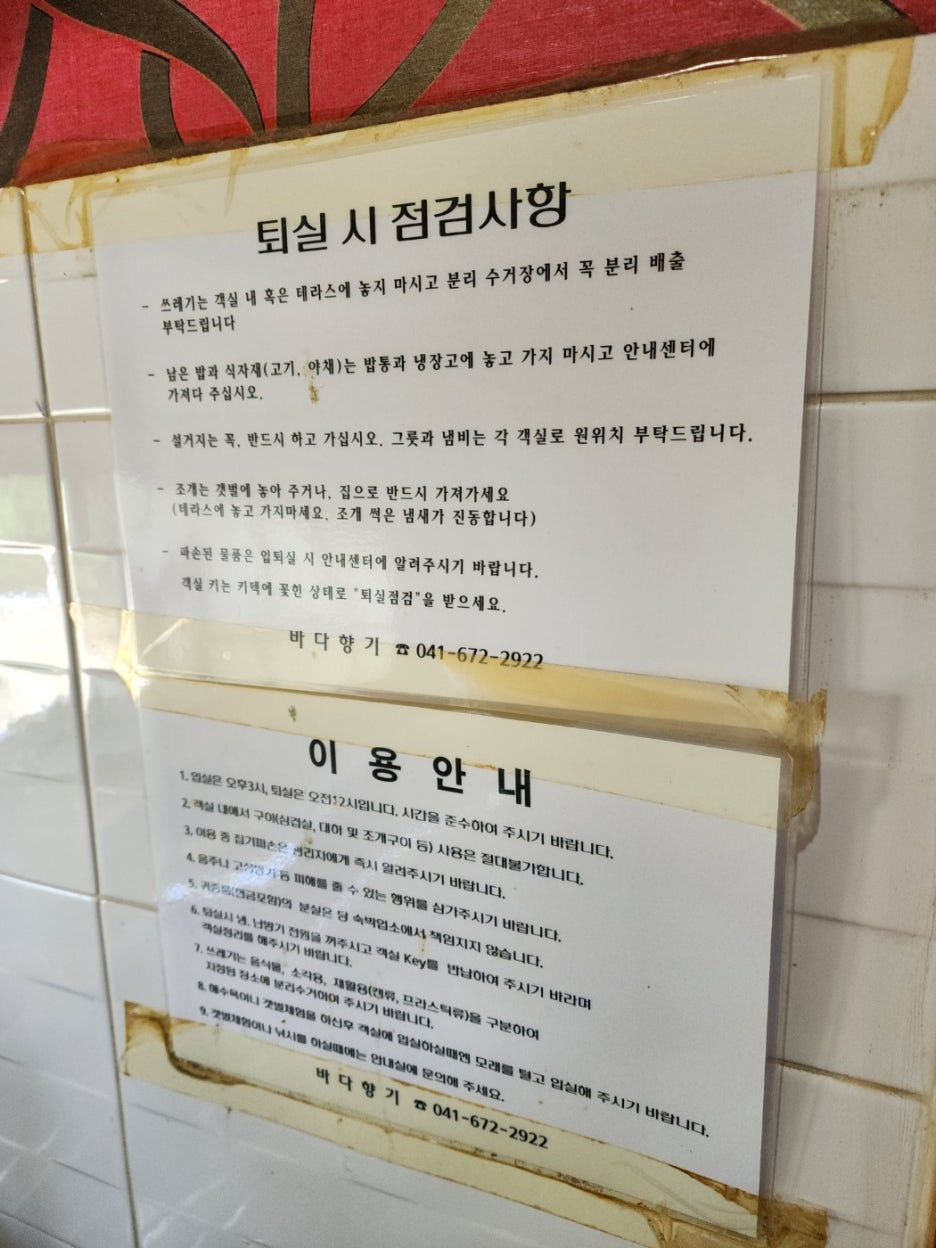 퇴실 시 점검사항
- 쓰레기는 객실 내 혹은 테라스에 놓지 마시고 분리 수거장에서 꼭 분리 배출
부탁드립니다
- 남은 밥과 식자재(고기, 야채)는 밥통과 냉장고에 놓고 가지 마시고 안내센터에
가져다 주십시오.
- 설거지는 꼭, 반드시 하고 가십시오. 그릇과 냄비는 각 객실로 원위치 부탁드립니다.
- 조개는 갯벌에 놓아 주거나, 집으로 반드시 가져가세요
(테라스에 놓고 가지마세요. 조개 썩은 냄새가 진동합니다)
- 파손된 물품은 입퇴실 시 안내센터에 알려주시기 바랍니다.
객실 키는 키텍에 꽃힌 상태로 "퇴실점검"을 받으세요.
바다향기 ☎ 041-672-2922
이 용 안 내
1. 입실은 오후3시, 퇴실은 오전12시입니다. 시간을 준수하여 주시기 바랍니다.
2. 객실 내에서 구이(삼겹살, 대하 및 조개구이 등) 사용은 절대불가합니다.
3. 이용 중 집기파손은 관리자에게 즉시 알려주시기 바랍니다.
4. 음주나 고성방가 등 피해를 줄 수 있는 행위를 삼가주시기 바랍니다.
5. 귀중품(현금포함)의 분실은 당 숙박업소에서 책임지지 않습니다.
6. 퇴실시 냉, 난방기 전원을 꺼주시고 객실 Key를 반납하여 주시기 바라며
객실정리를 해주시기 바랍니다.
7. 쓰레기는 음식물, 소각용, 재활용(캔류, 프라스틱류)을 구분하여
지정된 장소에 분리수거하여 주시기 바랍니다.
8. 해수욕이나 갯벌체험을 하신후 객실에 입실하실때엔 모래를 털고 입실해 주시기 바랍니다.
9. 갯벌체험이나 낚시를 하실때에는 안내실에 문의해 주세요.
바다향기 ☎ 041-672-2922